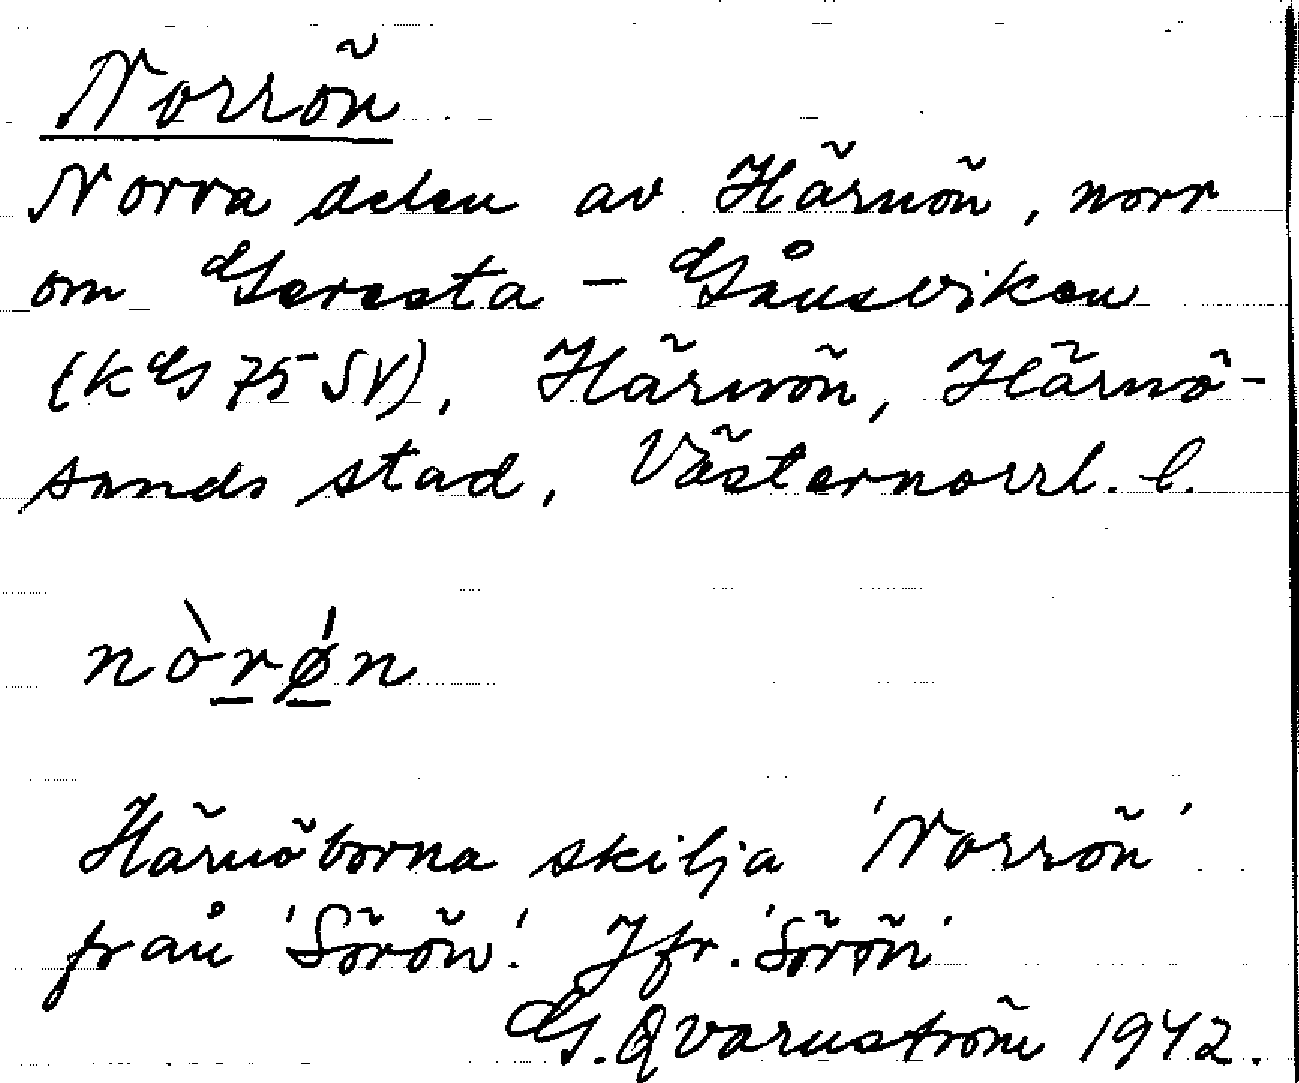 Norrön
Norra delen av Härnön, norr
om Geresta - Gånsviken
(kGs 75 SV), Härnön, Härnö-
sands stad, Västernorrl. l.
nòrøń
Härnöborna skilja 'Norrön'
från 'Sörön'. Jfr. 'Sörön'
G. Qvarnström 1942.